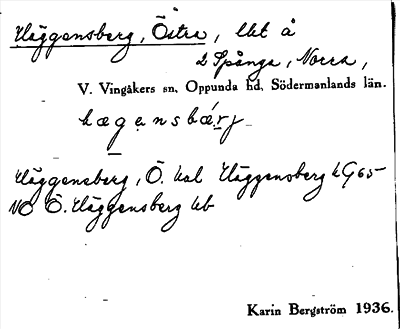 Häggensberg, Östra, lht å
Spånga, Norra,
V. Vingåkers sn, Oppunda hd, Södermanlands län.
hægǝnsbærj
Häggensberg, Ö. kal Häggensberg kG65
NO Ö. Häggensberg hb
Karin Bergström 1936.